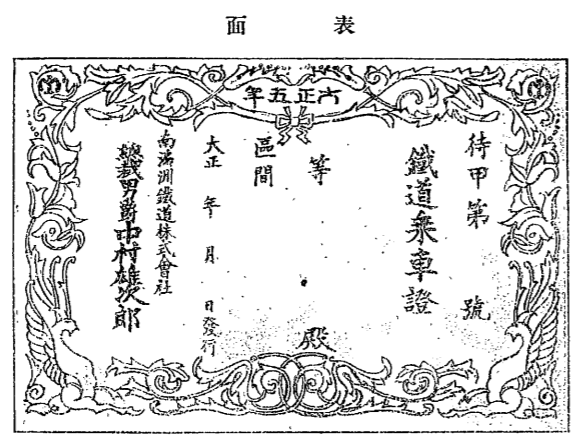 表面
大正五年
待甲第　號
鐵道乗車證
等　殿
區間
大正　年　月　日發行
南滿洲鐵道株式會社
總裁男爵中村雄次郎